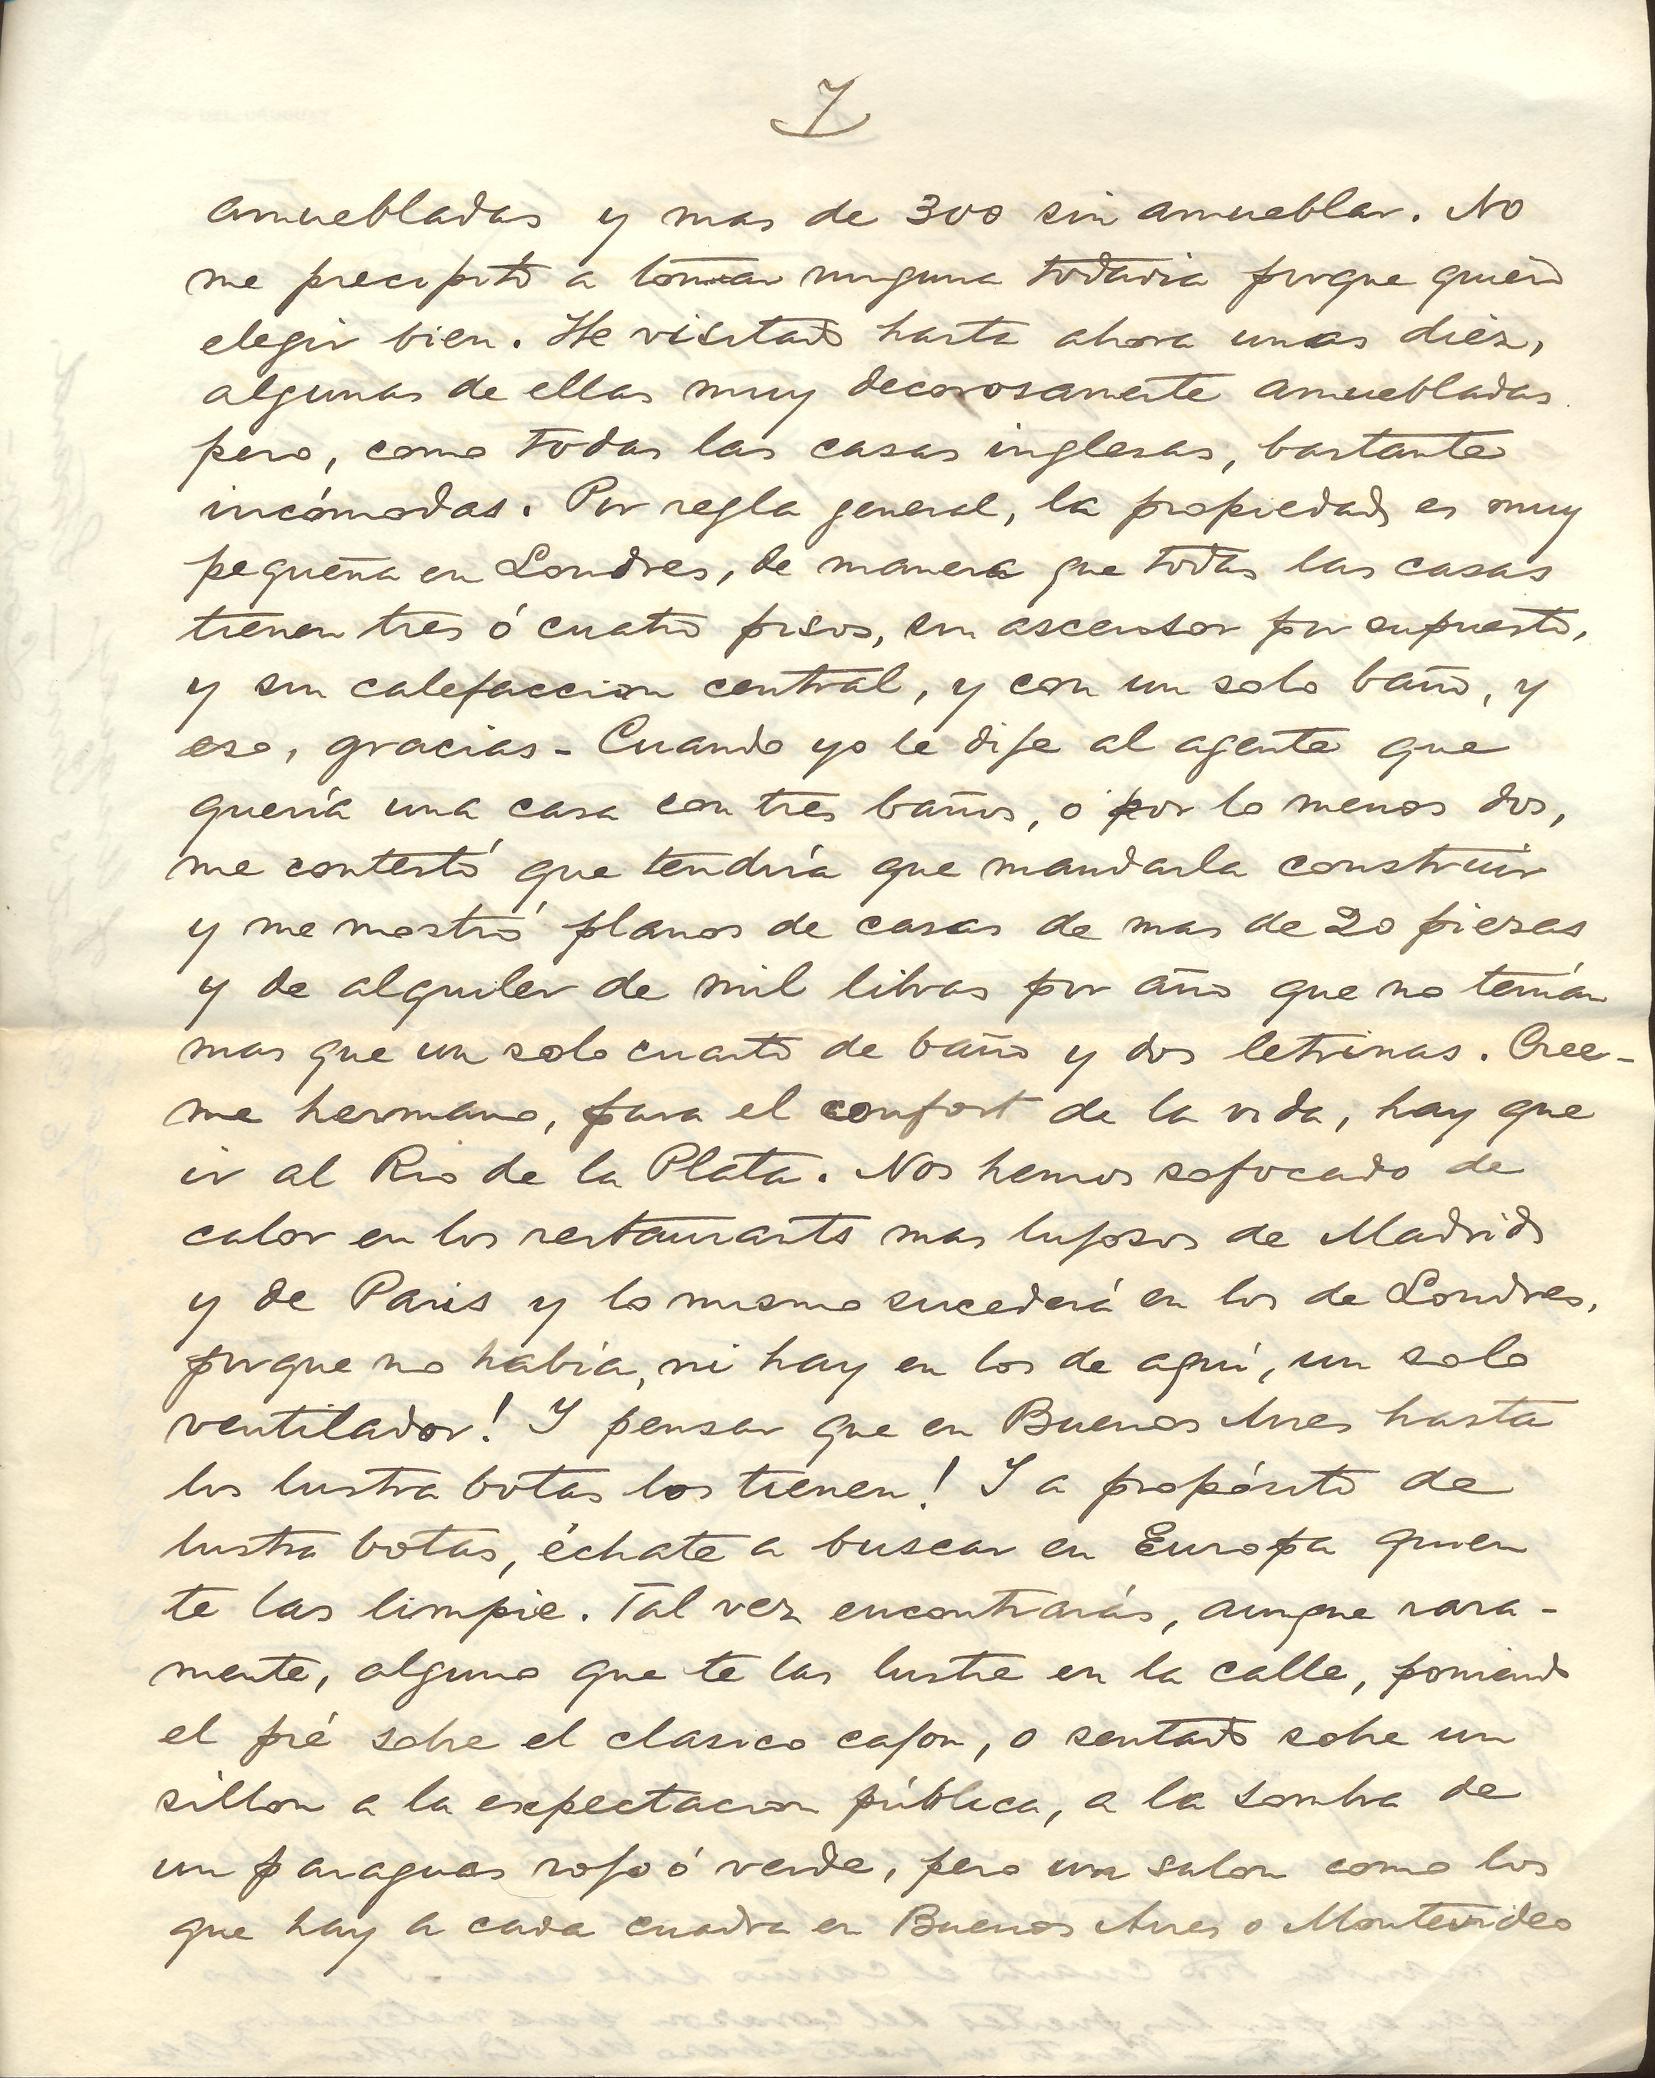 7
amuebladas y mas de 300 sin amueblar. No
me precipito a tomar ninguna todavia porque quiero
elegir bien. He visitado hasta ahora unas diez,
algunas de ellas muy decorosamente amuebladas
pero, como todas las casas inglesas, bastante
incómodas. Por regla general, la propiedad es muy
pequeña en Londres, de manera que todas las casas
tienen tres ó cuatro pisos, sin ascensor por supuesto,
y sin calefaccion central, y con un solo baño, y
eso, gracias - Cuando yo le dije al agente que
quería una casa con tres baños, o por lo menos dos,
me contestó que tendría que mandarla construir
y me mostró planos de casas de mas de 20 piezas
y de alquiler de mil libras por año que no tenían
mas que un solo cuarto de baño y dos letrinas. Cree-
me hermano, para el confort de la vida, hay que
ir al Rio de la Plata. Nos hemos sofocado de
calor en los restaurants mas lujosos de Madrid
y de Paris y lo mismo sucederá en los de Londres,
porque no había, ni hay en los de aquí, un solo
ventilador! Y pensar que en Buenos Aires hasta
los lustra botas los tienen! Y a propósito de
lustra botas, échate a buscar en Europa quien
te las limpie. Tal vez encontrarás, aunque rara-
mente, alguno que te las lustre en la calle, poniendo
el pié sobre el clasico cajon, o sentado sobre un
sillon a la expectacion pública, a la sombra de
un paraguas rojo ó verde, pero un salon como los
que hay a cada cuadra en Buenos Aires o Montevideo